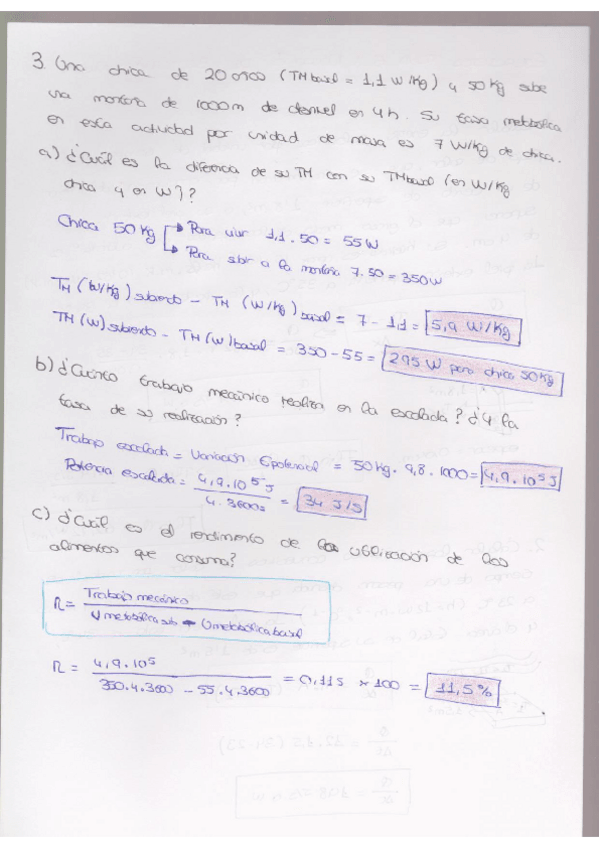 3. Una chica de 20 años (TM basal = 1,1 W/Kg) y 50 Kg sube
una montaña de 1000 m de desnivel en 4 h. Su tasa metabólica
en esta actividad por unidad de masa es 7 W/Kg de chica.
a) ¿Cuál es la diferencia de su TM con su TM basal (en W/Kg
chica y en W)?
Chica 50 Kg → Para vivir 1,1 . 50 = 55 W
→ Para subir a la montaña 7 . 50 = 350 W
TM (W/Kg) subiendo - TM (W/Kg) basal = 7 - 1,1 = 5,9 W/Kg
TM (W) subiendo - TM (W) basal = 350 - 55 = 295 W para chica 50 Kg
b) ¿Cuánto trabajo mecánico realiza en la escalada? ¿Y la
tasa de su realización?
Trabajo escalada = Variación Epotencial = 50 Kg . 9,8 . 1000 = 4,9 . 10⁵ J
Potencia escalada = 4,9 . 10⁵ J / 4 . 3600s = 34 J/S
c) ¿Cuál es el rendimiento de la utilización de los
alimentos que consume?
R = Trabajo mecánico / U metabólica sub - U metabólica basal
R = 4,9 . 10⁵ / 350 . 4 . 3600 - 55 . 4 . 3600 = 0,115 × 100 = 11,5 %